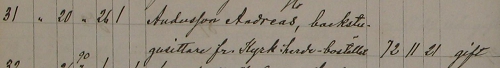 31 " 20 " 26 1 Andersson Andreas, backstu-
gusittare fr. Kyrkoherde-bostället 72 11 21 gift